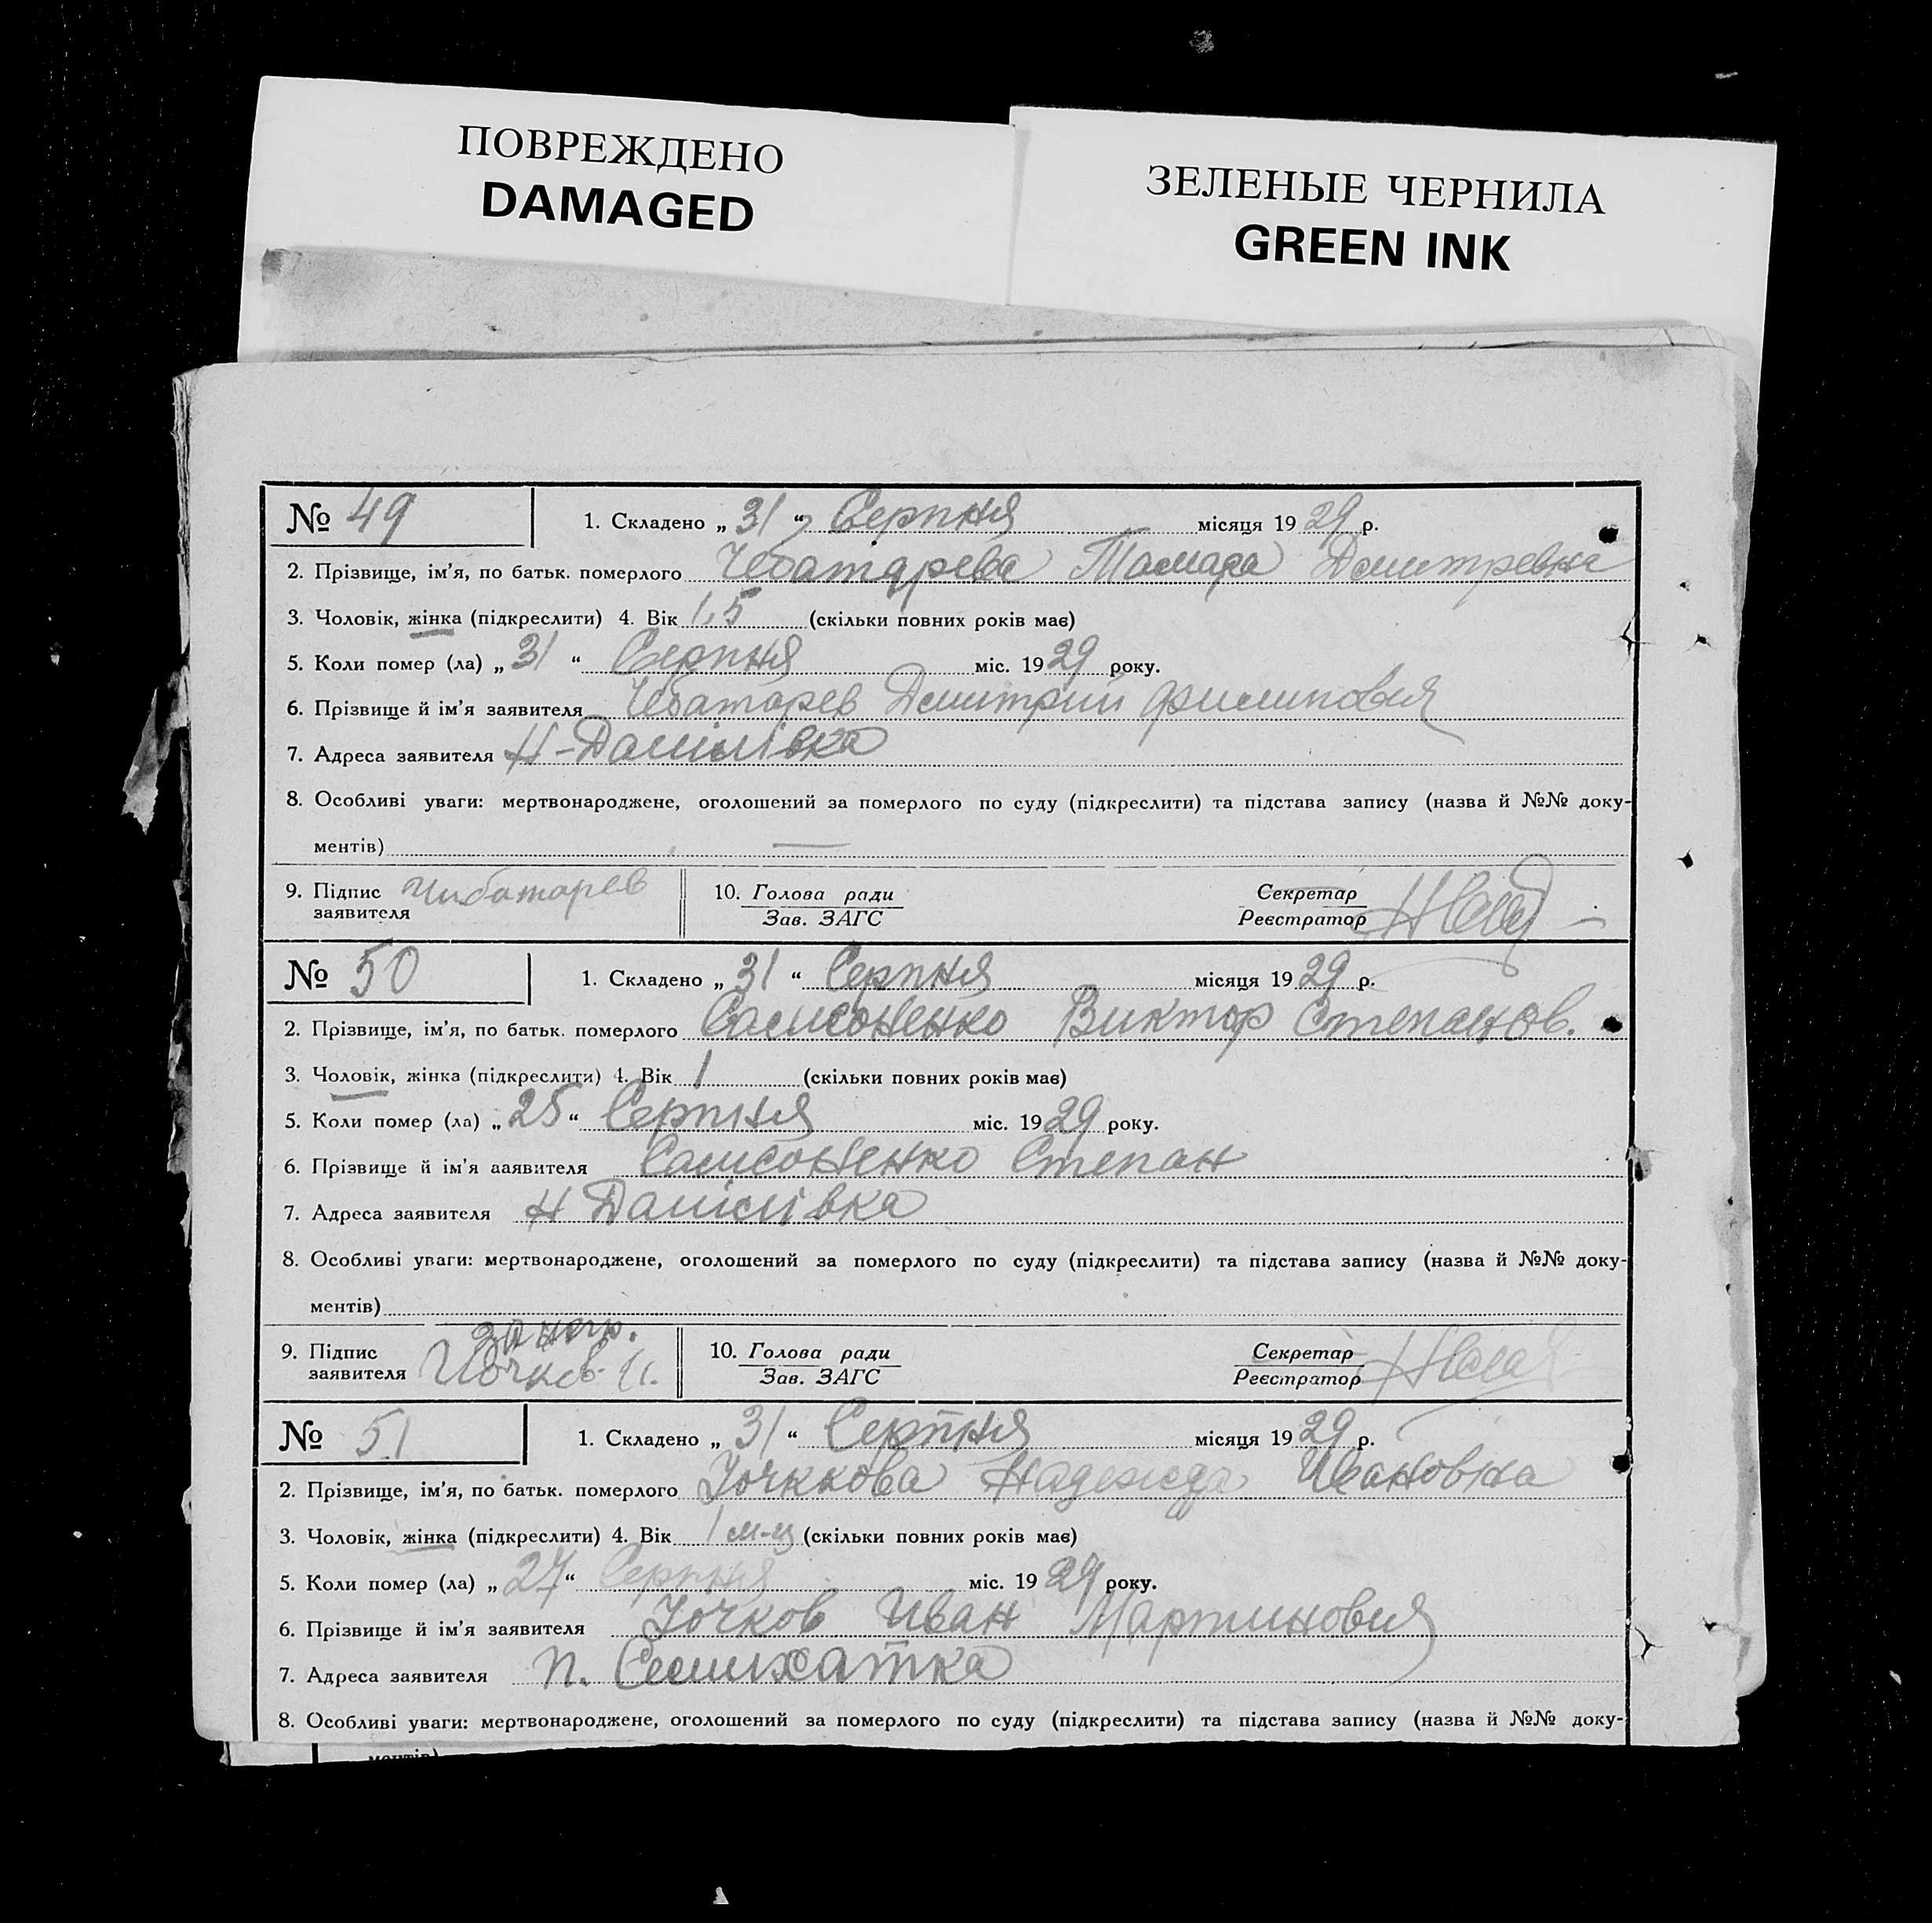 ПОВРЕЖДЕНО
DAMAGED
ЗЕЛЕНЫЕ ЧЕРНИЛА
GREEN INK
№ 49
1. Складено „ 31 “ Серпня місяця 1929 р.
2. Прізвище, ім'я, по батьк. померлого Чебатарева Тамара Дмитревна
3. Чоловік, жінка (підкреслити) 4. Вік 1,5 (скільки повних років має)
5. Коли помер (ла) „ 31 “ Серпня міс. 1929 року.
6. Прізвище й ім'я заявителя Чебатарев Дмитрий Филипович
7. Адреса заявителя Н-Данілівка
8. Особливі уваги: мертвонароджене, оголошений за померлого по суду (підкреслити) та підстава запису (назва й №№ доку-
ментів) —
9. Підпис заявителя Чибатарев
10. Голова ради
Зав. ЗАГС
Секретар
Реєстратор
№ 50
1. Складено „ 31 “ Серпня місяця 1929 р.
2. Прізвище, ім'я, по батьк. померлого Самсоненко Виктор Степанов.
3. Чоловік, жінка (підкреслити) 4. Вік 1 (скільки повних років має)
5. Коли помер (ла) „ 25 “ Серпня міс. 1929 року.
6. Прізвище й ім'я аявителя Самсоненко Степан
7. Адреса заявителя Н Данілівка
8. Особливі уваги: мертвонароджене, оголошений за померлого по суду (підкреслити) та підстава запису (назва й №№ доку-
ментів)
9. Підпис заявителя
10. Голова ради
Зав. ЗАГС
Секретар
Реєстратор
№ 51
1. Складено „ 31 “ Серпня місяця 1929 р.
2. Прізвище, ім'я, по батьк. померлого Надежда Ивановна
3. Чоловік, жінка (підкреслити) 4. Вік 1 м-ц (скільки повних років має)
5. Коли помер (ла) „ 27 “ Серпня міс. 1929 року.
6. Прізвище й ім'я заявителя Иван Мартинович
7. Адреса заявителя п. Семихатка
8. Особливі уваги: мертвонароджене, оголошений за померлого по суду (підкреслити) та підстава запису (назва й №№ доку-
ментів)